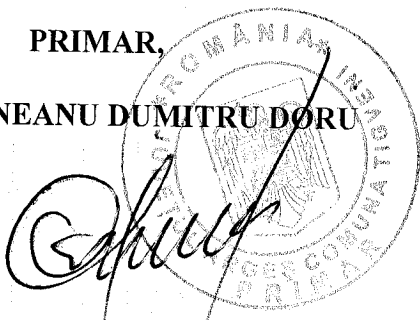 PRIMAR,
NEANU DUMITRU DORU
ROMÂNIA
COMUNA
PRIMAR